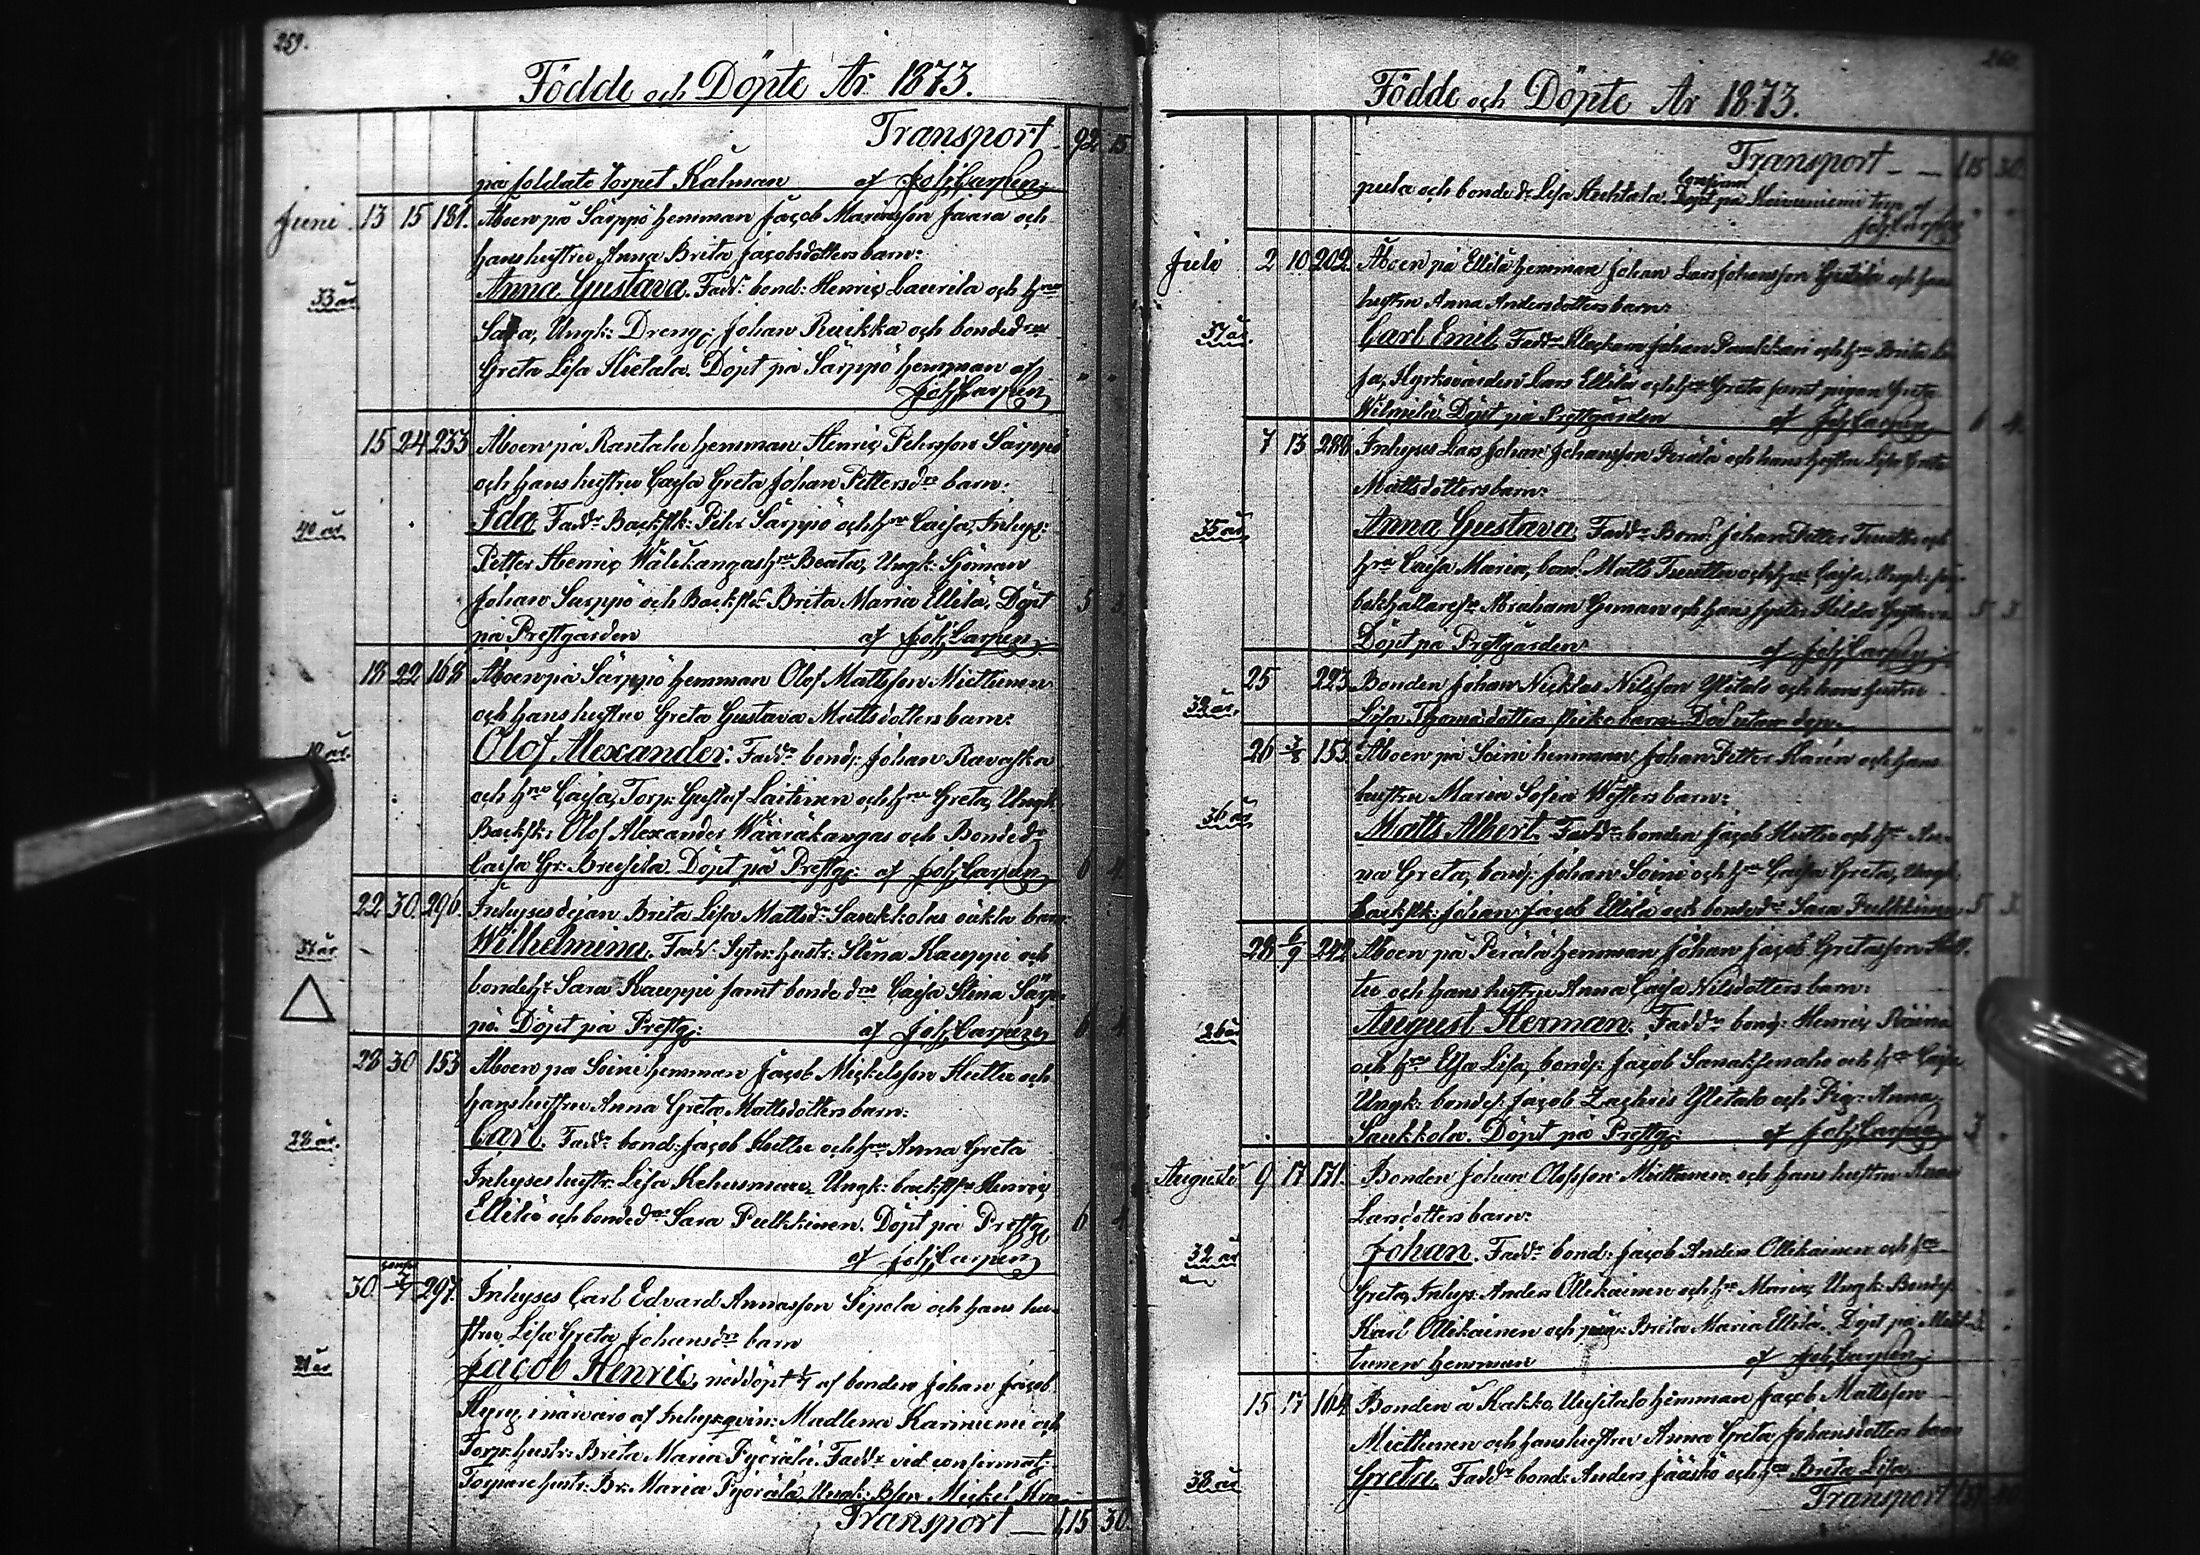 259.
Födde och Döpte År 1873.
Transport 92 15
på soldate torpet Kalman af Joh Carpen
Juni 13 15 181. Åboen på Särppö hemman Jacob Jaara och
hans hustru Anna Brita Jacobsdotters barn:
33 år Anna Gustava. Fadd: bond: Henric Laurila och hru
Sara, Ungk: Dreng: Johan Ruikka och bonded
Greta Lisa Hietala. Döpt på Särppö hemman af
Joh Carpen
15 24 233 Åboen på Rantala hemman Henric Pehrsson Särppö
och hans hustru Caisa Greta Johan Pettersdrs barn:
40 år Ida. Fadd: Backstk: Pehr Särppö och hru Caisa, Inhys:
Petter Henric Wälikangas hru Beata, Ungk: Sjöman
Johan Särppö och Backstd: Brita Maria Ellilä. Döpt 5 3
på Prestgården af Joh Carpen
18 22 168 Åboen på Särppö hemman Olof Mattsson Miettunen
och hans hustru Greta Gustava Mattsdotters barn:
år Olof Alexander. Fadd: bonds: Johan Ravaska
och hru Caisa, Torp: Gustaf Laitinen och hru Greta, Ungk:
Backstk: Olof Alexander Määräkangas och Bonded
Caisa Gr: Brusila. Döpt på Prestg: af Joh Carpen 6 4
22 30 296 Inhysesdejan Brita Lisa Mattsd: Saukkolas oäkta barn
37 år Wilhelmina. Fadd: hustr: Stina Kauppi och
bondeh: Sara Kauppi samt bonde dr Caisa Stina Särp-
pö. Döpt på Prestg: af Joh Carpen 6 4
28 30 153 Åboen på Soini hemman Jacob Mickelsson Huttu och
hans hustru Anna Greta Mattsdotters barn:
28 år. Carl. Fadd: bond: Jacob Huttu och hru Anna Greta
Inhyses hustr: Lisa Kehusmaa, Ungk: backst Henric
Ellilä och bonded: Sara Pulkkinen. Döpt på Prestg 6 4
af Joh Carpen
30 297. Inhyses Carl Edvard Annasson Sipola och hans hu-
stru Lisa Greta Johansdr barn
21 år Jacob Henric, nöddöpt af bonden Johan Jacob
Kyrö, i närvaro af Inhysqvin: Madlena Karinieni och
Torp: hustr: Brita Maria Pyörälä. Fadd: vid confirmat:
Torpare hustr: Br: Maria Pyörälä, Ungk: Bson Mickel
Transport 115 30.
260.
Födde och Döpte År 1873.
Transport 115 30.
pula och bonde d: Lisa Huhtala. Döpt på Kainuniemi torp af
Joh Carpen
Juli 2 10 202 Åboen på Ellilä hemman Johan Lars Johansson och hans
hustru Anna Andersdotters barn:
37 år. Carl Emil. Fadd: Klockaren Johan Paakkari och hru Brita Li-
sa, Kyrkovärden Lars Ellilä och hru Greta samt pigan Greta
Wilmilä. Döpt på Prestgården af Joh Carpen 6 4.
7 13 288 Inhyses Lars Johan Johansson Perälä och hans hustru Lisa Greta
Mattsdotters barn:
35 år Anna Gustava. Fadd: Bond: Johan Petter Tuuttu och
hru Caisa Maria, bond: Matts Tuuttu och hru Caisa, Ungk:
bokhållare Abraham och hans syster Hilda Gustava 5 3.
Döpt på Prestgården af Joh Carpen
25 223 Bonden Johan Nicklas Nilsson Ylitalo och hans hustru
32 år. Lisa Thomasdotters flicke barn. Död utan dop.
26 153. Åboen på Soini hemman Johan Petter Karén och hans
hustru Maria Sofia Westers barn:
36 år Matts Albert. Fadd: bonden Jacob Huttu och hru An-
na Greta, bond: Johan Soini och hru Caisa Greta, Ungk:
backstk: Johan Jacob Ellilä och bonded: Sara Pulkkinen 5 3.
28 6/9 242 Åboen på Perälä hemman Johan Jacob Gretasson Hut-
tu och hans hustru Anna Caisa Nilsdotters barn:
26 år August Herman. Fadd: bond: Henric
och hru Elsa Lisa, bond: Jacob Sanaksenaho och hru Caisa
Ungk: bond: Jacob Zachris Ylitalo och Pig: Anna
Saukkola. Döpt på Prestg: af Joh Carpen 3
Augusti 9 17 171. Bonden Johan Olofsson Miettunen och hans hustru Anna
Larsdotters barn:
32 år Johan. Fadd: bond: Jacob Anders Ollikainen och hru
Greta, Inhys: Anders Ollikainen och hru Maria, Ungk: Bonds:
Karl Ollikainen och pig: Brita Maria Ellilä. Döpt på Miet-
tunen hemman af Joh Carpen
15 17 164 Bonden å Kakko Uusitalo hemman Jacob Mattsson
Miettunen och hans hustru Anna Greta Johansdotters barn
38 år Greta. Fadd: bond: Anders Jääskö och hru Brita Lisa
Transport